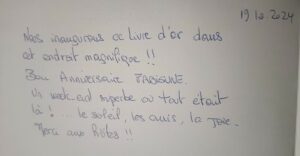 19.10.2024
Nous inaugurons ce Livre d'or dans
cet endroit magnifique !!
Bon Anniversaire
Un week-end superbe où tout était
là ! ... le soleil, les amis, la joie.
Merci aux hôtes !!